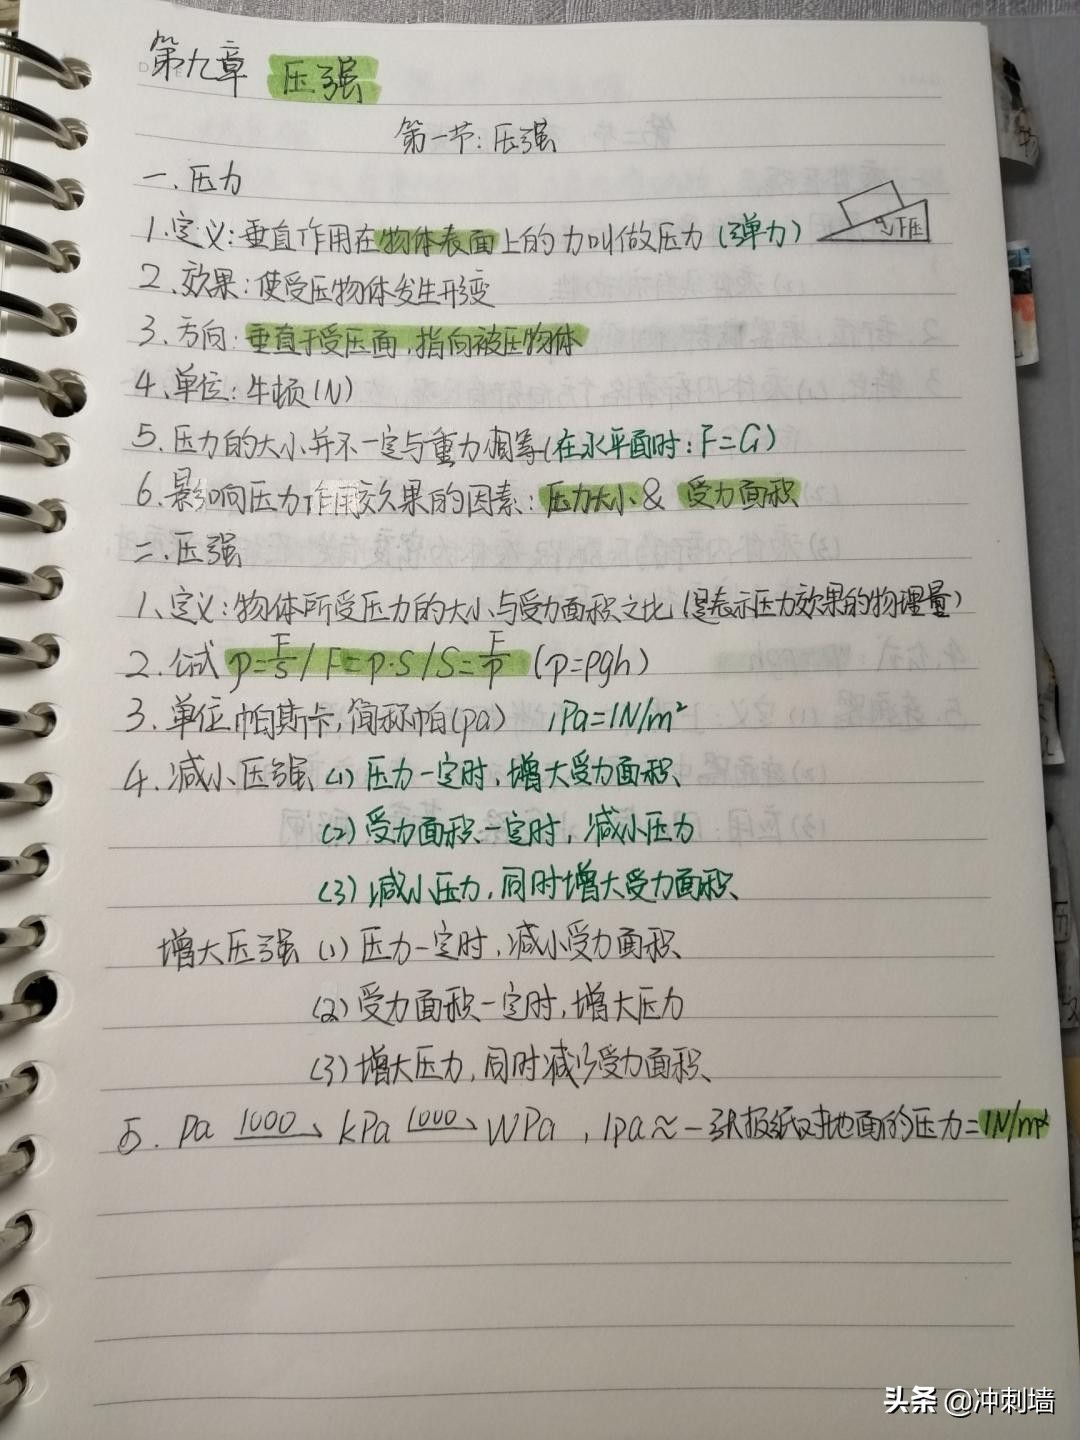 第九章 压强
第一节:压强
一.压力
1.定义:垂直作用在物体表面上的力叫做压力(弹力)
F压
2.效果:使受压物体发生形变
3.方向:垂直于受压面,指向被压物体
4.单位:牛顿(N)
5.压力的大小并不一定与重力相等(在水平面时:F=G)
6.影响压力作用效果的因素:压力大小& 受力面积
二.压强
1、定义:物体所受压力的大小与受力面积之比(是表示压力效果的物理量)
2.公式 p=F/S / F=p·S / S=F/p (p=ρgh)
3.单位 帕斯卡,简称帕(pa) 1Pa=1N/m²
4.减小压强 (1)压力一定时,增大受力面积、
(2)受力面积一定时,减小压力
(3)减小压力,同时增大受力面积、
增大压强 (1)压力一定时,减小受力面积、
(2)受力面积一定时,增大压力
(3)增大压力,同时减少受力面积、
5. Pa 1000→ kPa 1000→ MPa ,1pa≈一张报纸对地面的压力=1N/m²
头条 @冲刺墙